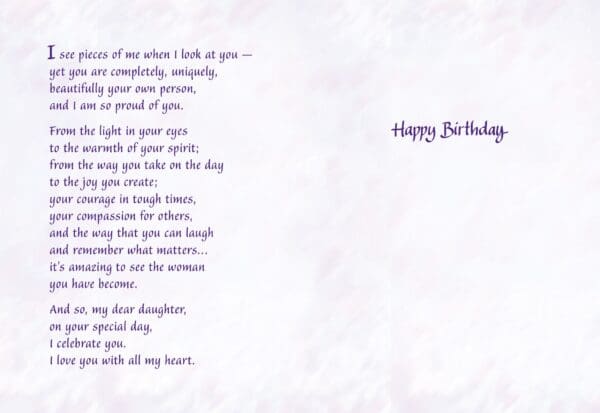 I see pieces of me when I look at you —
yet you are completely, uniquely,
beautifully your own person,
and I am so proud of you.
From the light in your eyes
to the warmth of your spirit;
from the way you take on the day
to the joy you create;
your courage in tough times,
your compassion for others,
and the way that you can laugh
and remember what matters...
it's amazing to see the woman
you have become.
And so, my dear daughter,
on your special day,
I celebrate you.
I love you with all my heart.
Happy Birthday